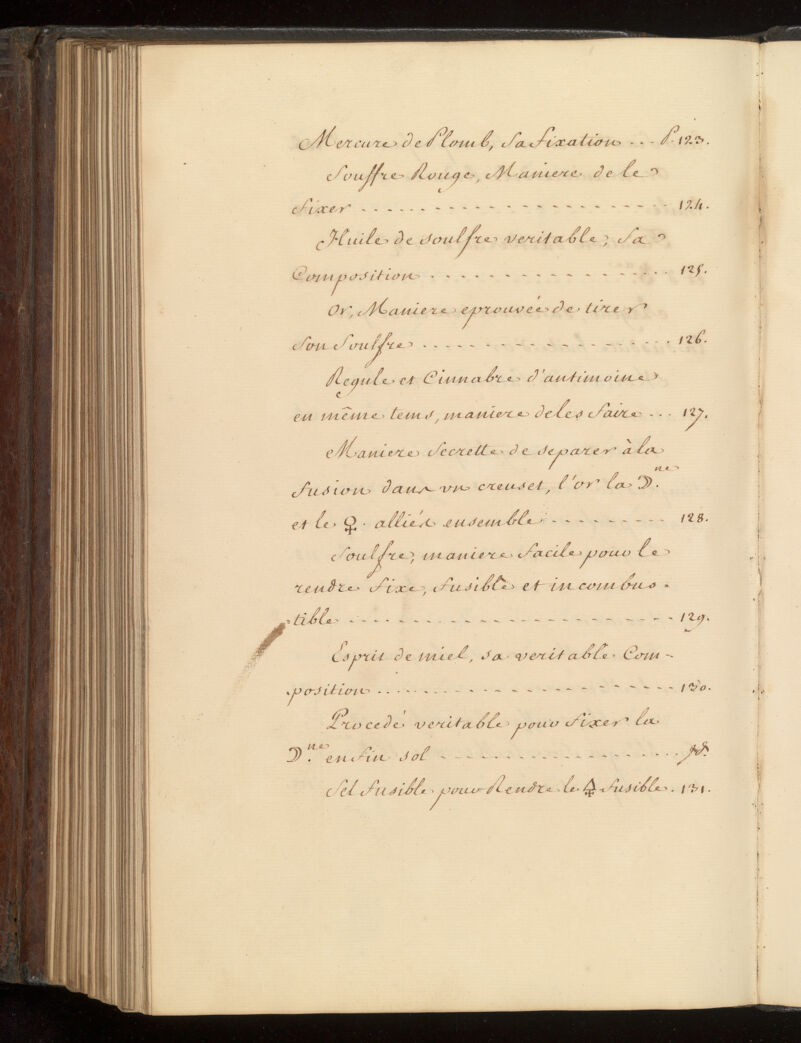 Mercure de Plomb, Sa Fixation . . . P. 123.
Souffre Rouge, Maniere de le
fixer - - - - - - - - - - - - - - - - - - - - 124.
Huile de soulfre veritable; Sa
Composition - - - - - - - - - - - - - - - - 125.
Or, Maniere eprouvée de tirer
Son Soulfre - - - - - - - - - - - - - - - - 126.
Regule et Cinnabre d'antimoine
en même tems, maniere de les faire . . . 127.
Maniere secrette de separer à la
fusion dans un creuset, l'or la ☽.ne
et le ♀. alliés ensemble - - - - - - - - - 128.
Soulfre; maniere facile pour le
rendre fixe, fusible et incombus-
tible - - - - - - - - - - - - - - - - - - - - - 129.
Esprit de miel, sa veritable Com-
position - - - - - - - - - - - - - - - - - - 130.
Procedé veritable pour fixer la
☽.ne en fin sol - - - - - - - - - - - - - - - - jd.
Sel fusible pour Rendre le 🜍 fusible. 131.